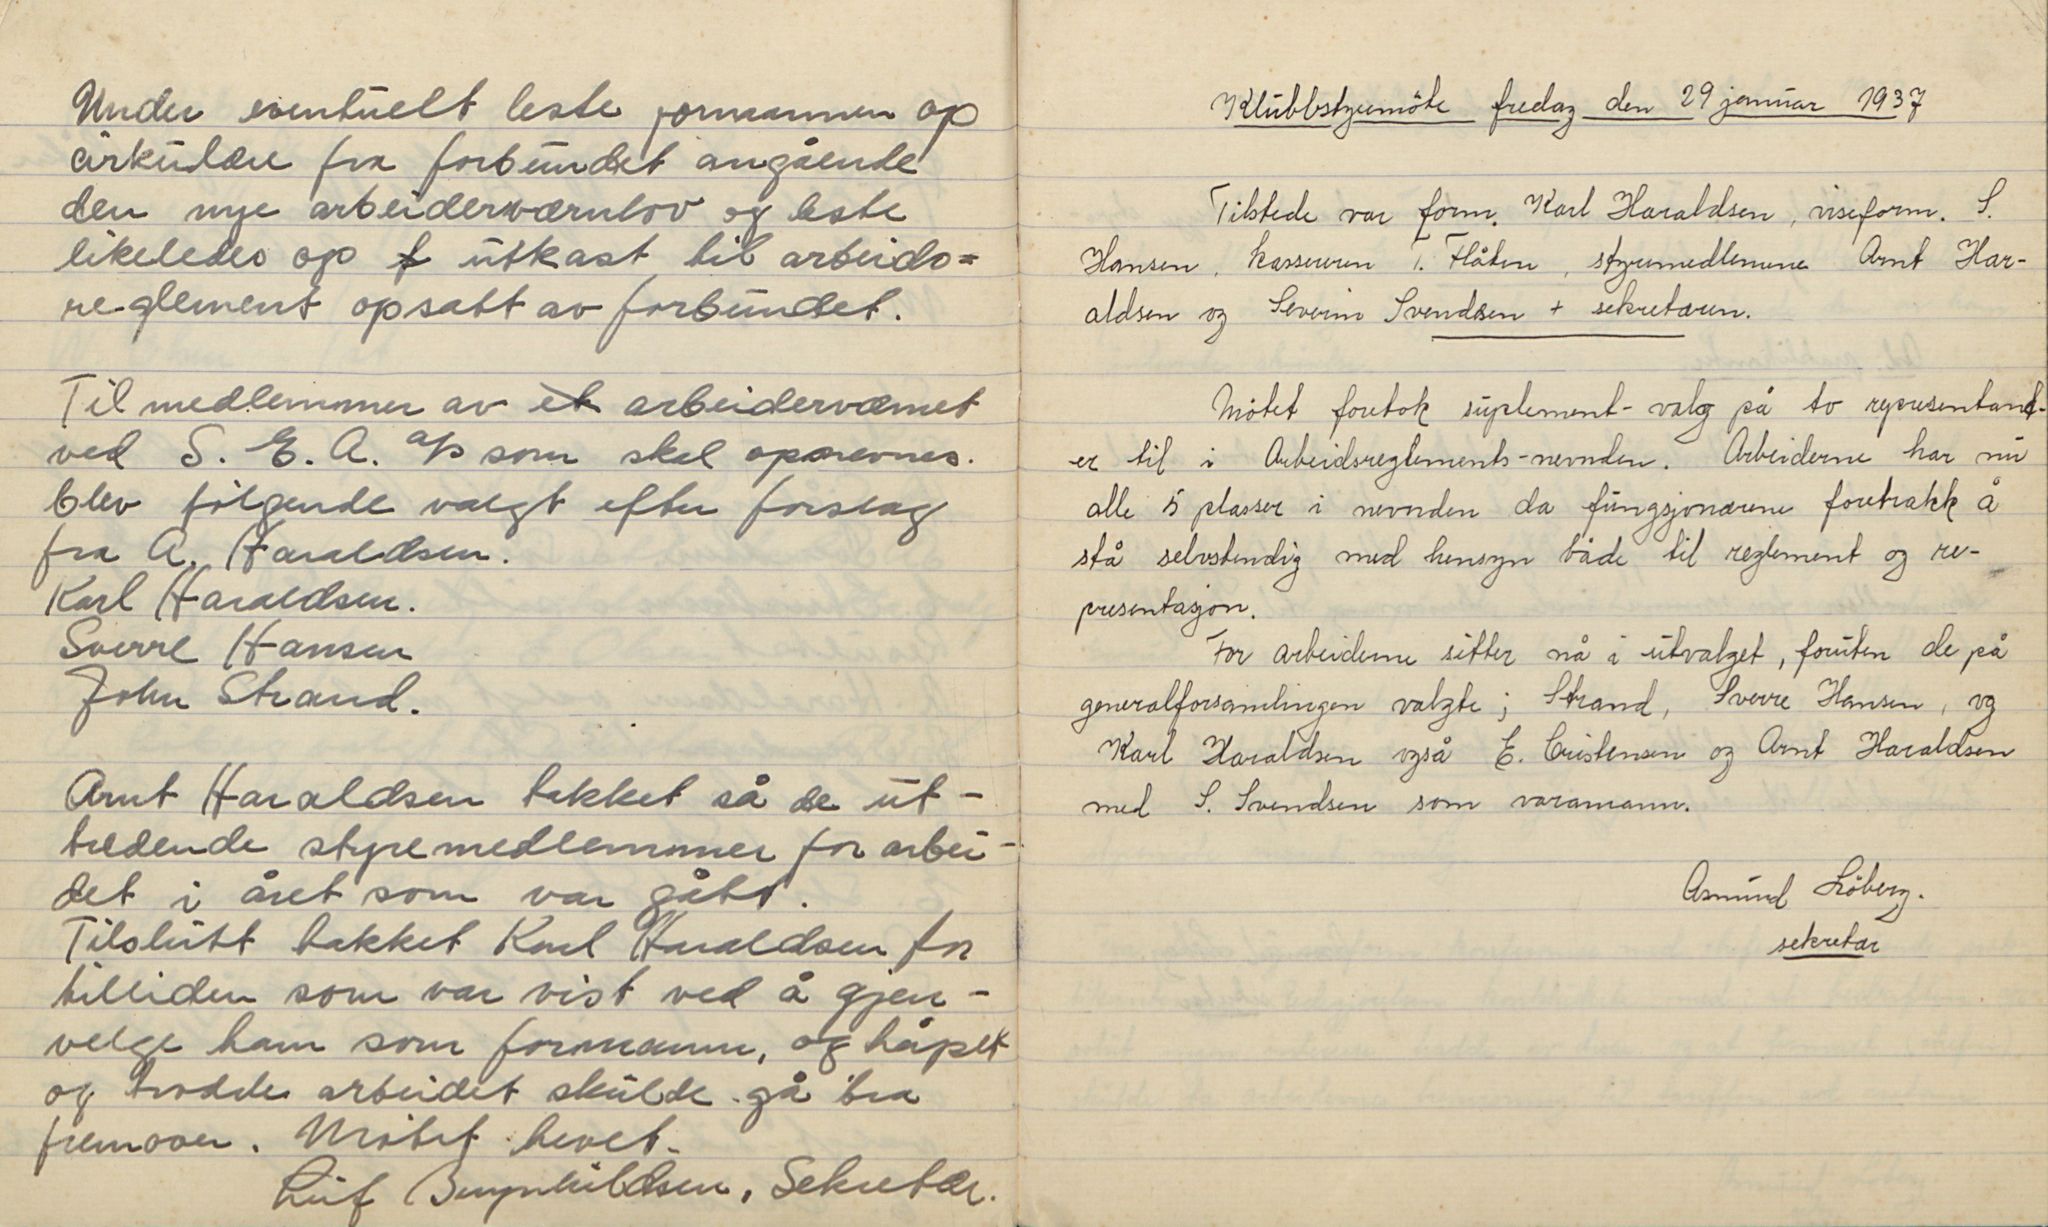 Under eventuelt leste formannen op
cirkulære fra forbundet angående
den nye arbeidervernlov og leste
likeledes op utkast til arbeids=
reglement opsatt av forbundet.
Til medlemmer av et arbeidervernet
ved S. E. A. a/s som skal opnevnes.
blev følgende valgt efter forslag
fra A. Haraldsen.
Karl Haraldsen.
Sverre Hansen
John Strand.
Arnt Haraldsen takket så de ut-
tredende styremedlemmer for arbei-
det i året som var gått.
Tilslutt takket Karl Haraldsen for
tilliden som var vist ved å gjen-
velge ham som formann, og håpet
og trodde arbeidet skulde gå bra
fremover. Møtet hevet.
Leif Brynhildsen, Sekretær.
Klubbstyremöte fredag den 29 januar 1937
Tilstede var form. Karl Haraldsen, viseform. S.
Hansen, kassereren T. Flåten, styremedlemene Arnt Har-
aldsen og Severin Svendsen + sekretæren.
Mötet foretok suplement-valg på to representand-
er til i Arbeidsreglements-nevnden. Arbeiderne har nu
alle 5 plasser i nevnden da fungsjonærene foretrakk å
stå selvstendig med hensyn både til reglement og re-
presentasjon.
For arbeiderne sitter nå i utvalget, foruten de på
generalforsamlingen valgte; Strand, Sverre Hansen, og
Karl Haraldsen også E. Cristensen og Arnt Haraldsen
med S. Svendsen som varamann.
Asmund Löberg.
sekretær